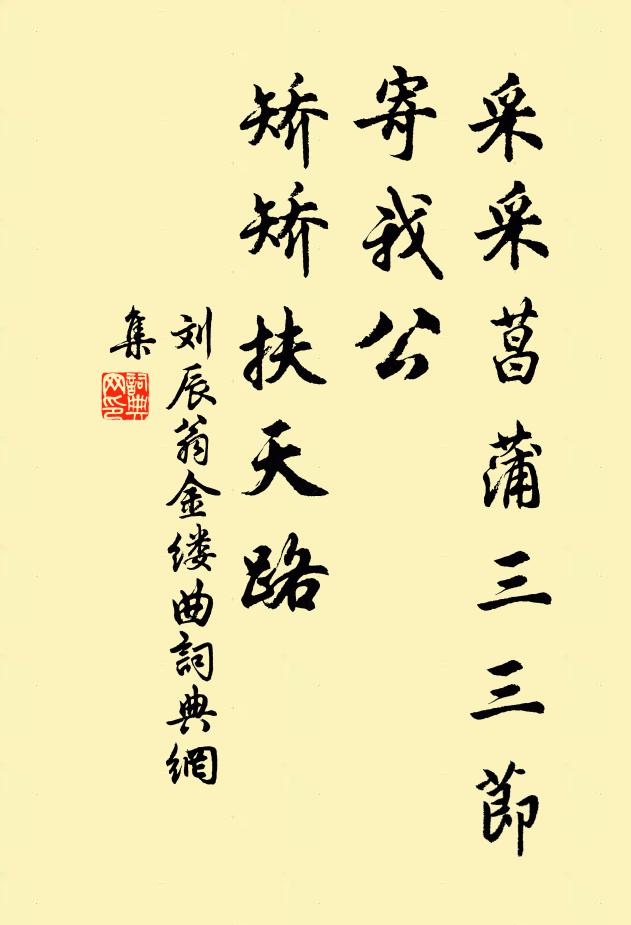 采采菖蒲三三節
寄我公
矫矫扶天路
刘辰翁金缕曲詞典網
集
詞典
网印